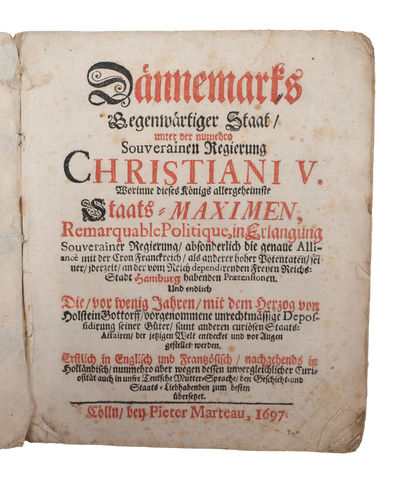 Dännemarks
Gegenwärtiger Staat/
unter der numehro
Souverainen Regierung
CHRISTIANI V.
Worinne dieses Königs allergeheimste
Staats-MAXIMEN,
Remarquable Politique, in Erlangung
Souverainer Regierung/ absonderlich die genaue Alli-
ance mit der Cron Franckreich/ als anderer hoher Potentaten/ sei-
ner/ jderzeit/ an der vom Reich dependirenden Freyen Reichs-
Stadt Hamburg habenden Prætensionen.
Und endlich
Die/ vor wenig Jahren/ mit dem Herzog von
Holstein Gottorff/ vorgenommene unrechtmässige Depos-
sidirung seiner Güter/ samt anderen curiösen Staats-
Affairen/ der jetzigen Welt entdecket und vor Augen
gestellet werden.
Erstlich in Englisch und Frantzösisch/ nachgehends in
Holländisch/ nunmehro aber wegen dessen unvergleichlicher Curi-
osität auch in unsre Teutsche Mutter-Sprache/ den Geschicht-und
Staats-Liebhabenden zum besten
übersetzet.
Cölln/ bey Pieter Marteau, 1697.